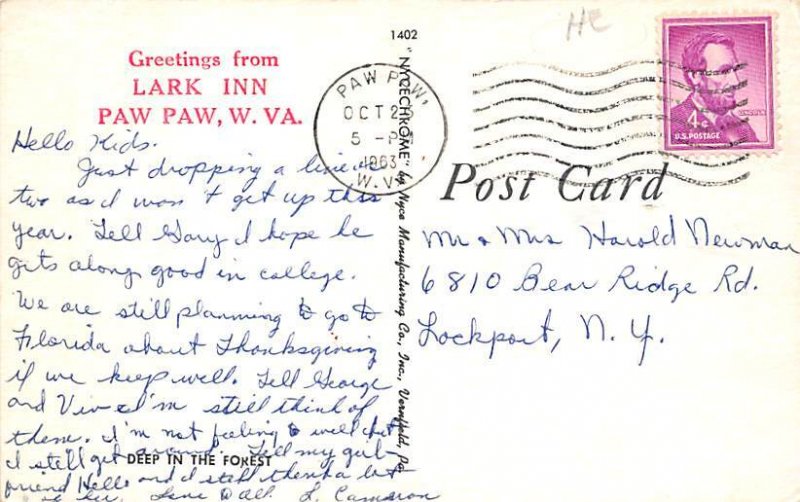 1402
Greetings from
LARK INN
PAW PAW, W. VA.
PAW PAW,
OCT 2
5 - P
1963
W. V
4¢
LINCOLN
U.S. POSTAGE
"NYCECHROME" by Nyce Manufacturing Co., Inc., Vernfield, Pa.
Post Card
Hello Kids.
Just dropping a line or
two as I won't get up this
year. Tell Gary I hope he
gets along good in college.
We are still planning to go to
Florida about Thanksgiving
if we keep well. Tell George
and Viv I'm still think of
them. I'm not feeling to well but
I still get around. Tell my girl
DEEP IN THE FOREST
friend Hello and I still think a lot
of her. Love to all L. Cameron
Mr & Mrs Harold Newman
6810 Bear Ridge Rd.
Lockport, N. Y.